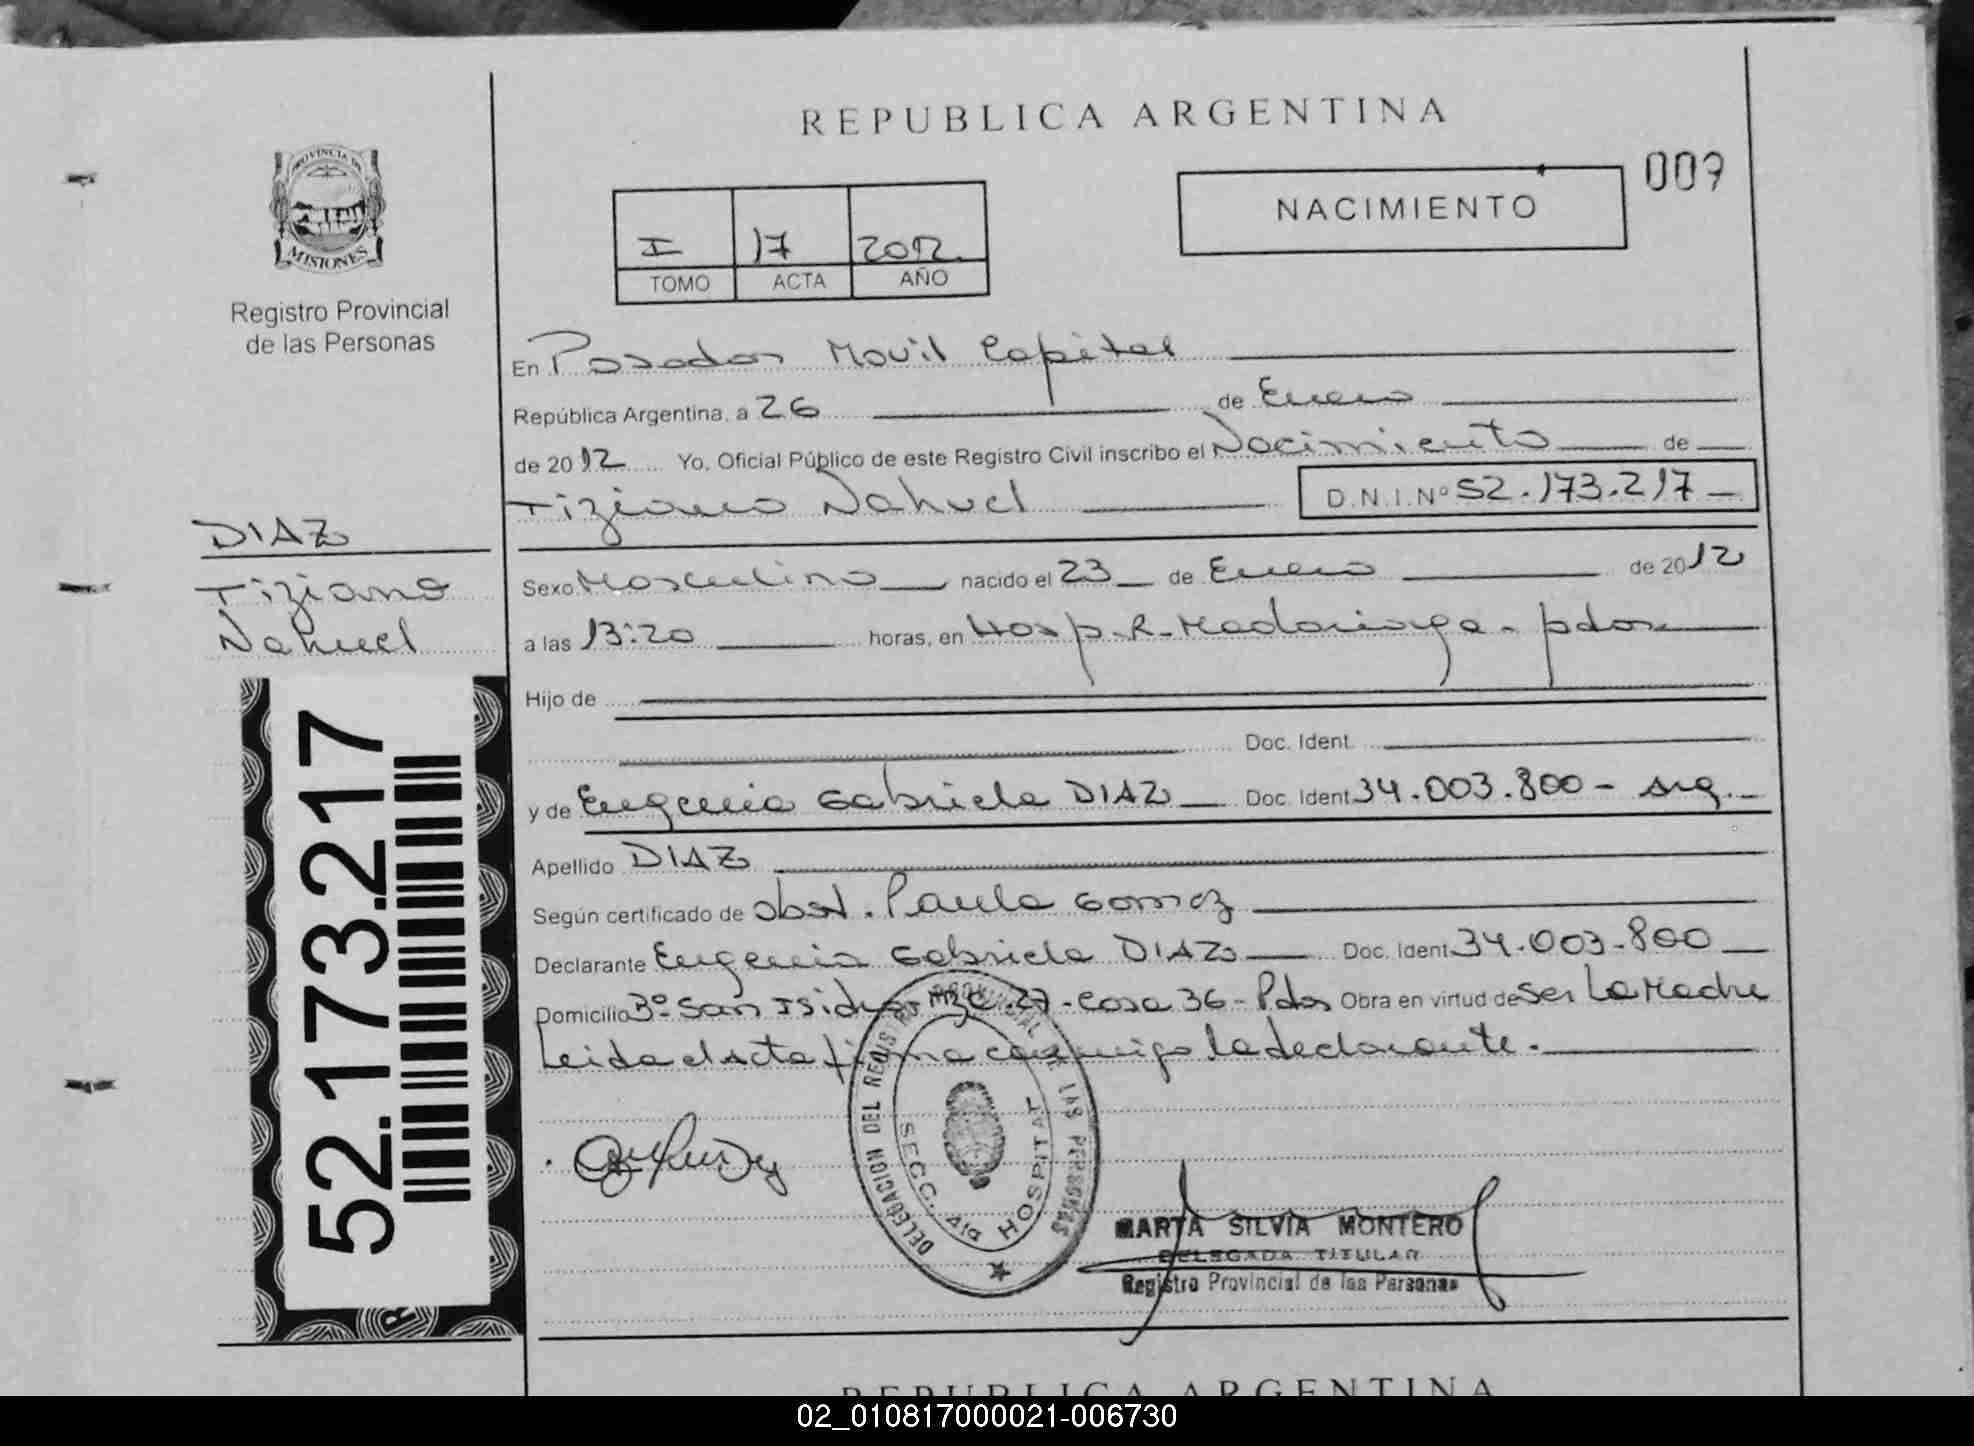 REPUBLICA ARGENTINA
009
NACIMIENTO
I 17 2012
TOMO ACTA AÑO
PROVINCIA DE
MISIONES
Registro Provincial
de las Personas
En Posadas Movil Capital
República Argentina, a 26 de Enero
de 2012 Yo, Oficial Público de este Registro Civil inscribo el Nacimiento de
Tiziano Nahuel D.N.I.Nº 52.173.217
DIAZ
Tiziano
Nahuel
Sexo Masculino nacido el 23 de Enero de 2012
a las 13:20 horas, en Hosp. R. Madariaga - pdas
Hijo de
Doc. Ident.
y de Eugenia Gabriela DIAZ Doc. Ident 34.003.800 - Arg.
Apellido DIAZ
Según certificado de obst. Paula Gomez
Declarante Eugenia Gabriela DIAZ Doc. Ident. 34.003.800
Domicilio Bº San Isidro mz. 27 - Casa 36 - Pdas Obra en virtud de Ser La Madre
Leida el Acta firma conmigo la declarante.
52.173.217
DELEGACION DEL REGISTRO PROVINCIAL DE LAS PERSONAS
SECC. 4ta HOSPITAL
MARTA SILVIA MONTERO
DELEGADA TITULAR
Registro Provincial de las Personas
R
REPUBLICA ARGENTINA
02_010817000021-006730